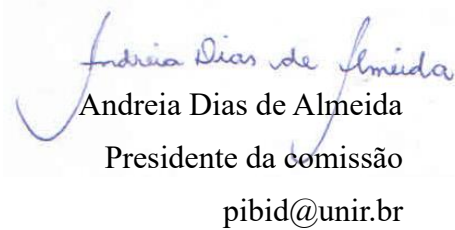 Andreia Dias de Almeida
Andreia Dias de Almeida
Presidente da comissão
pibid@unir.br